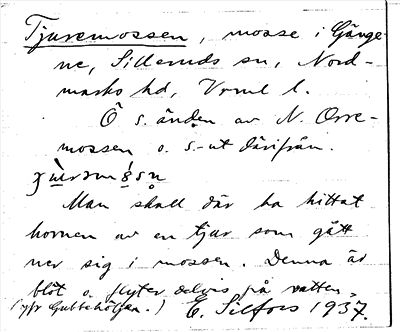 Tjuremossen, mosse i Gånge
ne, Silleruds sn, Nord-
marks hd, Vrml l.
Ö s. änden av N. Orre-
mossen o. s.-ut därifrån.
Man skall där ha hittat
hornen av en tjur som gått
ner sig i mossen. Denna är
blöt o. flyter delvis på vatten.
(jfr Gubbehöljan.) E. Silfors 1937.